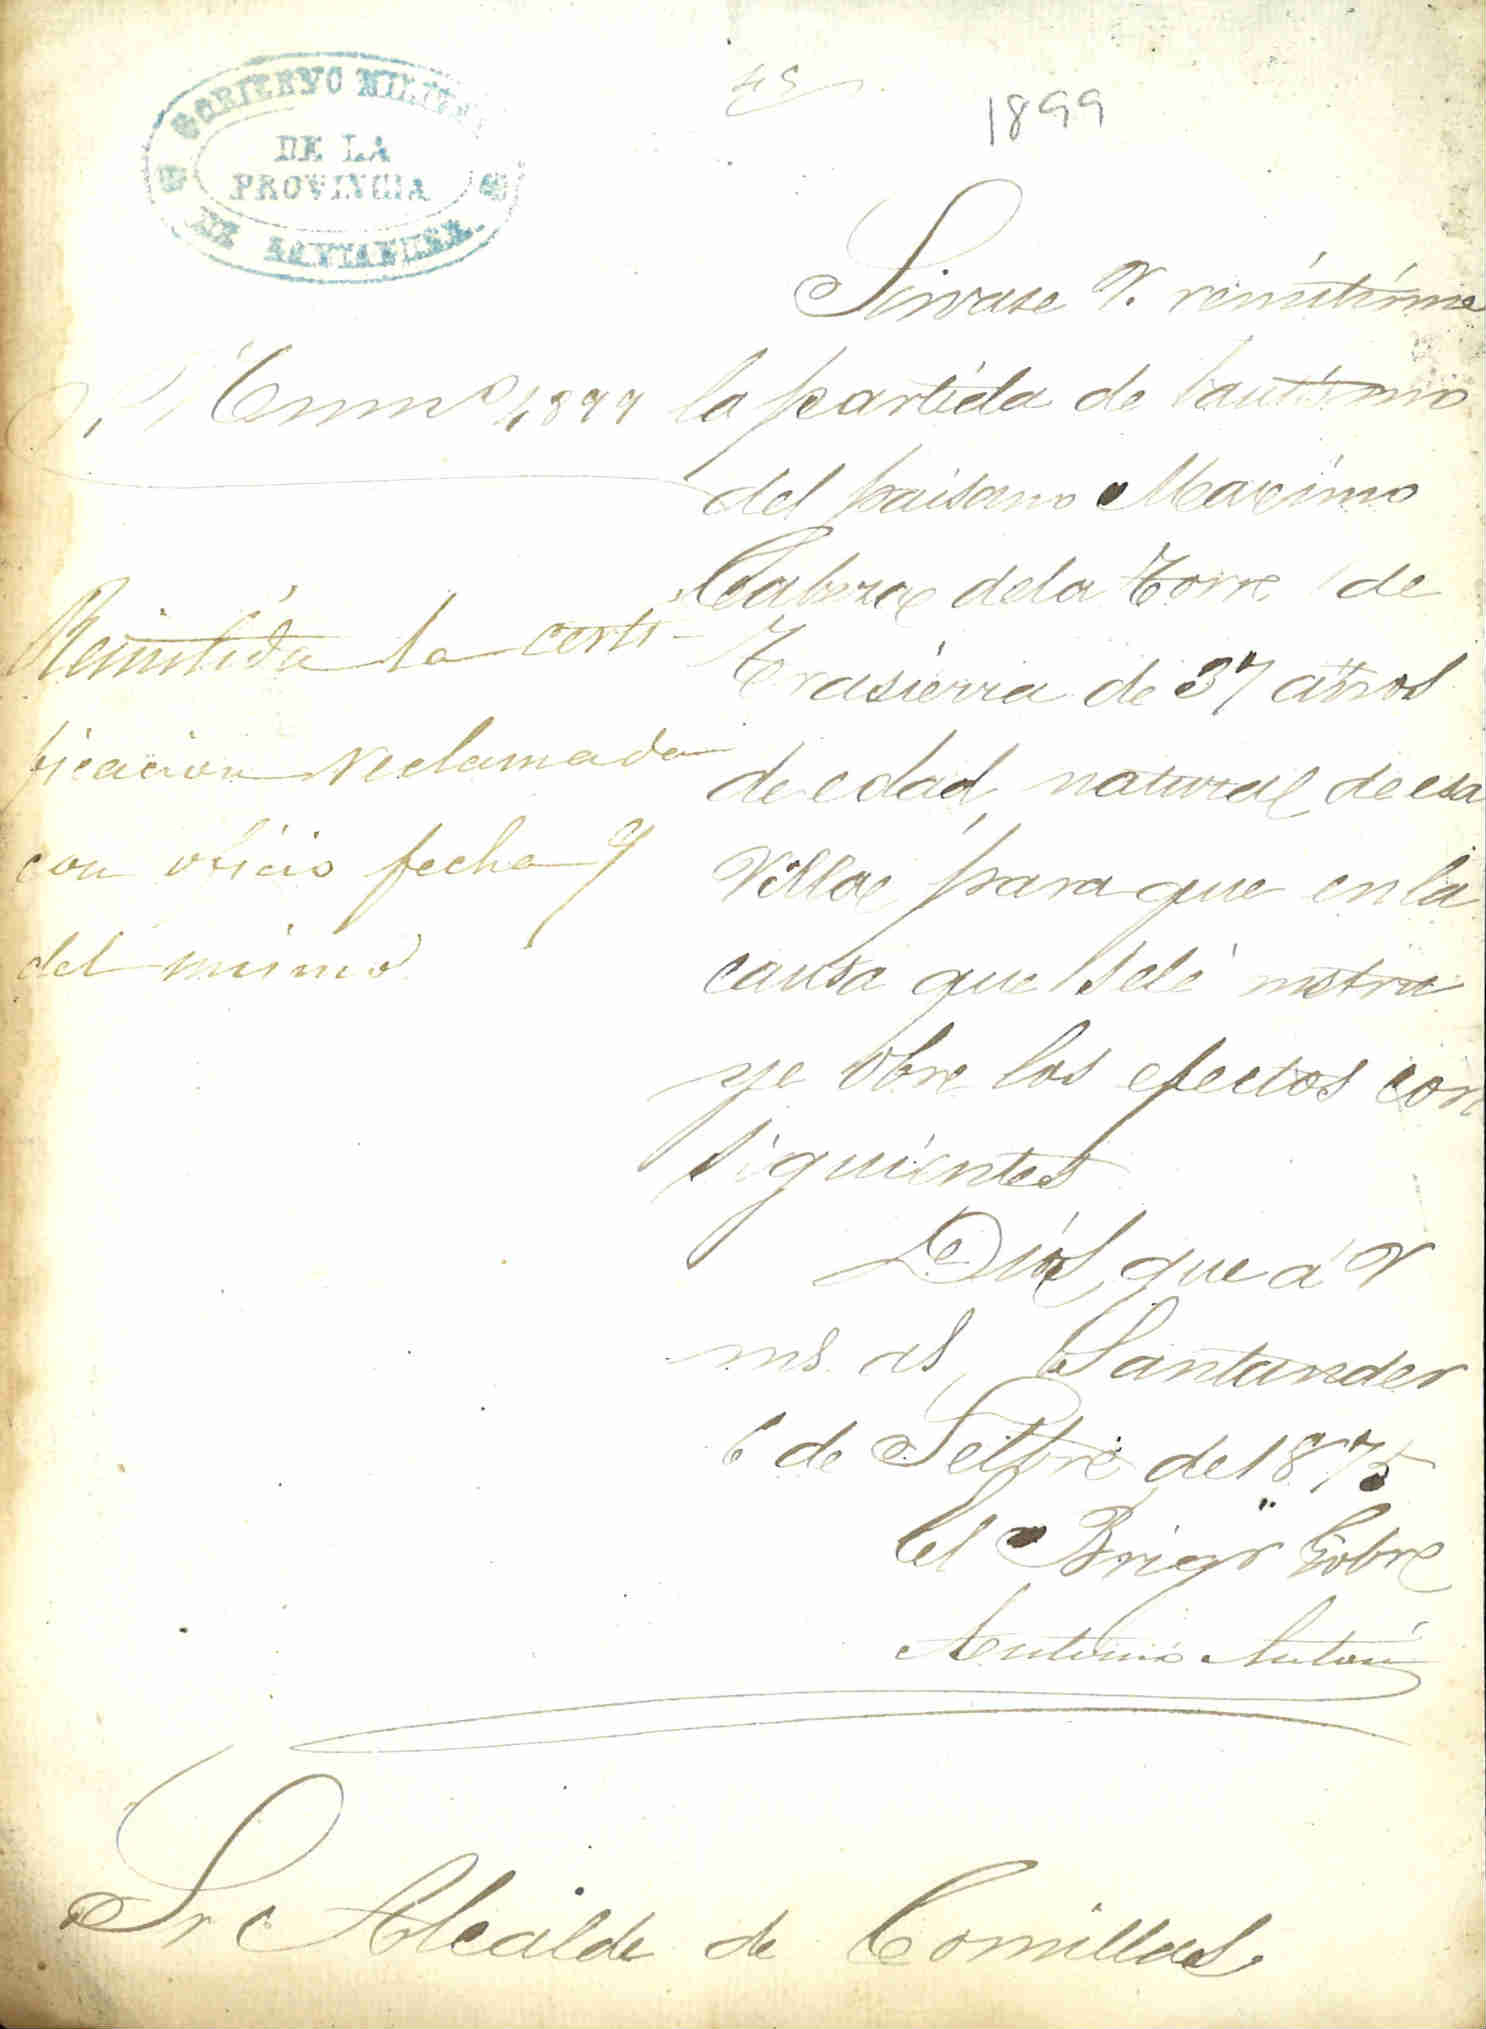 GOBIERNO MILITAR
DE LA
PROVINCIA
DE SANTANDER
45
1899
Sirvase V. remitirme
la partida de bautismo
del paisano Maximo
Cabeza dela Torre de
Trasierra de 37 años
de edad, natural de esa
Villa, para que en la
causa que sele instru
ye obre los efectos con
siguientes
Dios gue á V
ms. as, Santander
6 de Setbre de 1875
El Brigr Gobr
Antonio
Numo 1899
Remitida la certi-
ficacion reclamada
con oficio fecha 9
del mismo
Sr Alcalde de Comillas